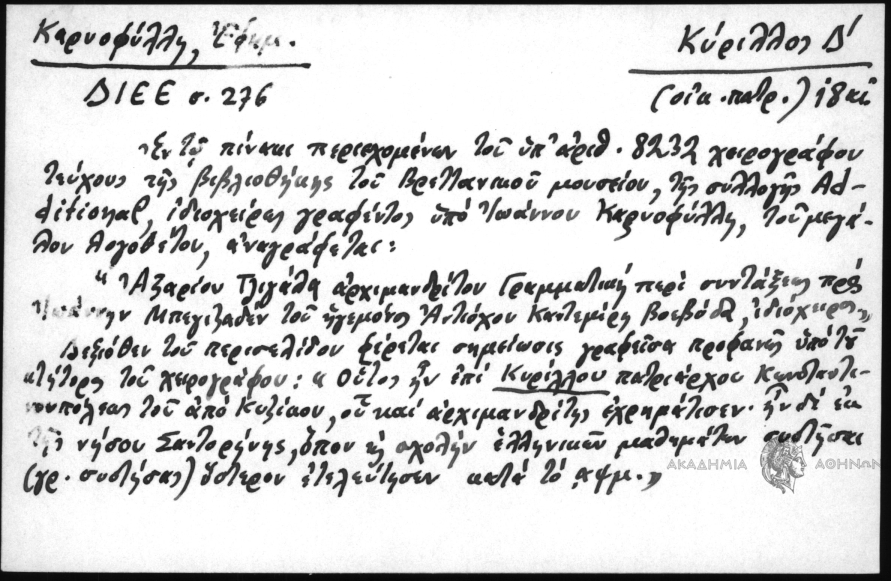 Καρυοφύλλη, Ἐφημ. Κύριλλος Δ΄
ΔΙΕΕ σ. 276 (οἰκ. πατρ.) 18 αἰ
«Ἐν τῷ πίνακι περιεχομένων τοῦ ὑπ' ἀριθ. 8232 χειρογράφου
τεύχους τῆς βιβλιοθήκης τοῦ Βρεττανικοῦ μουσείου, τῆς συλλογῆς Ad-
ditional, ἰδιοχείρως γραφέντος ὑπό Ἰωάννου Καρυοφύλλη, τοῦ μεγά-
λου Λογοθέτου, ἀναγράφεται:
"Ἀζαρίου Τζιγάλα ἀρχιμανδρίτου Γραμματική περί συντάξεως πρός
Ἰωάννην Μπεγιζαδέν τοῦ ἡγεμόνος Ἀντιόχου Καντεμίρη Βοεβόδα, ἰδιόχειρος»
Δεξιόθεν τοῦ περισελίδου φέρεται σημείωσις γραφεῖσα προφανῶς ὑπό τοῦ
κτήτορος τοῦ χειρογράφου: «Οὗτος ἦν ἐπί Κυρίλλου πατριάρχου Κωνσταντι-
νουπόλεως τοῦ ἀπό Κυζίκου, οὗ καί ἀρχιμανδρίτης ἐχρημάτισεν· ἦν δέ ἐκ
τῆς νήσου Σαντορήνης, ὅπου καί σχολήν ἑλληνικῶν μαθημάτων συστῆσαι
(γρ. συστήσας) ὕστερον ἐτελεύτησεν κατά τό ͵αψμ.»
ΑΚΑΔΗΜΙΑ ΑΘΗΝΩΝ